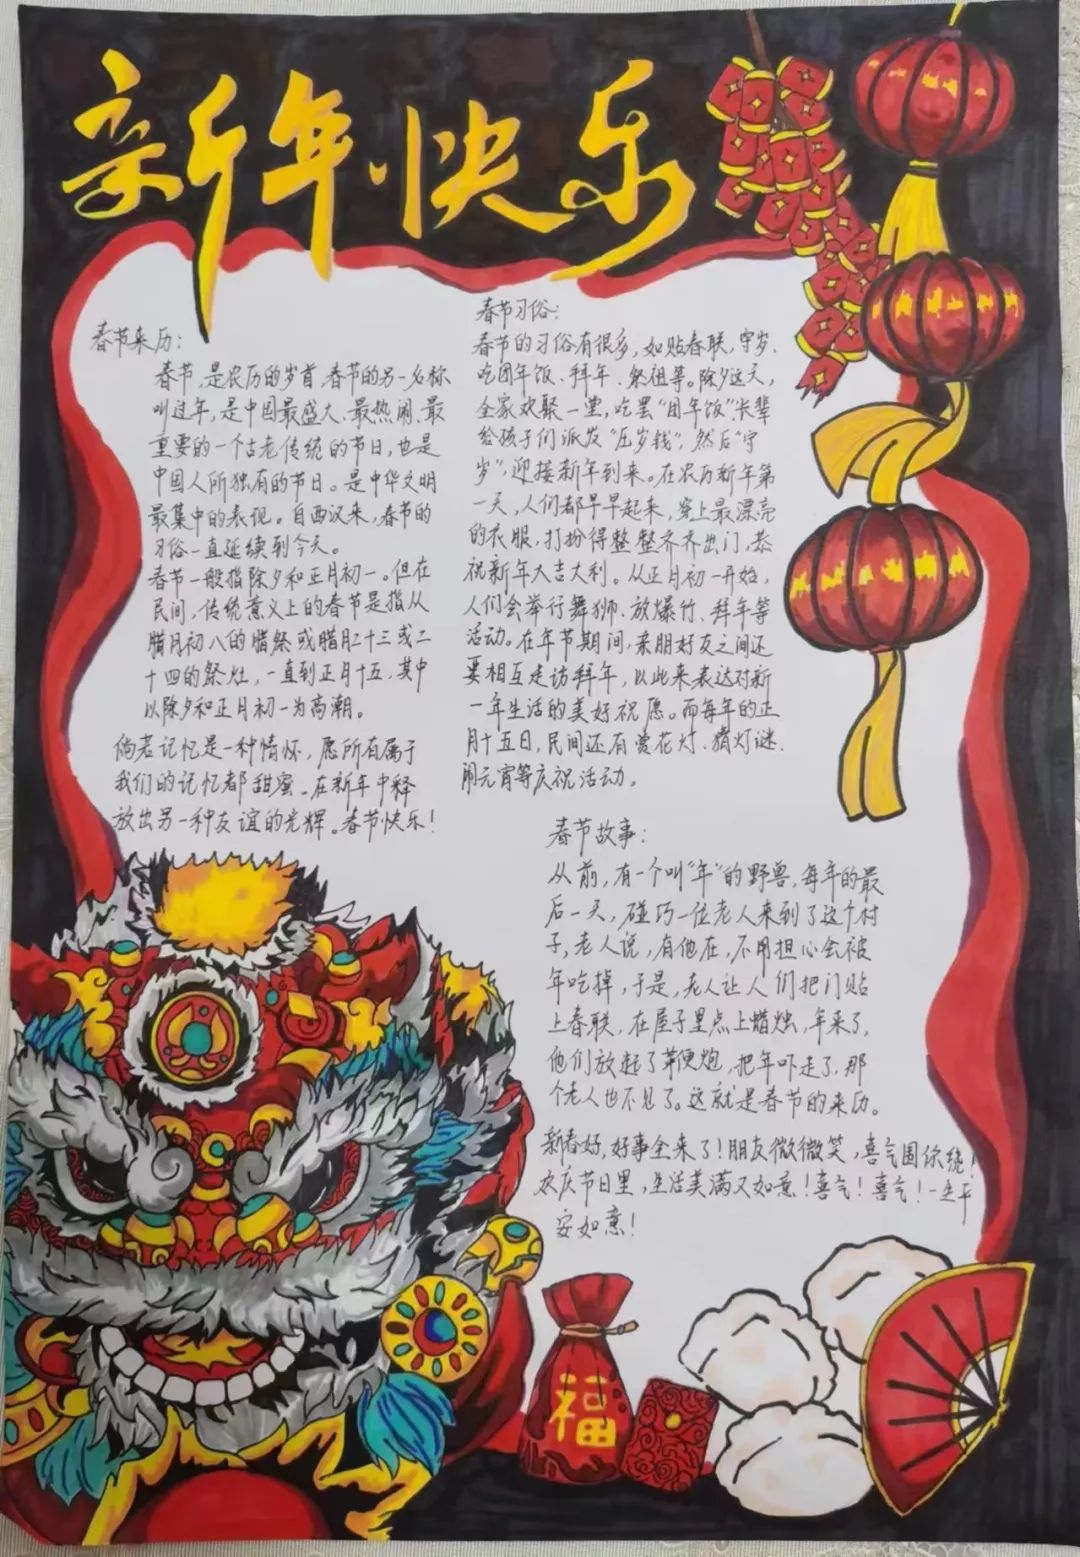 新年·快乐
春节来历：
春节，是农历的岁首，春节的另一名称
叫过年，是中国最盛大、最热闹、最
重要的一个古老传统的节日，也是
中国人所独有的节日。是中华文明
最集中的表现。自西汉来，春节的
习俗一直延续到今天。
春节一般指除夕和正月初一。但在
民间，传统意义上的春节是指从
腊月初八的腊祭或腊月二十三或二
十四的祭灶，一直到正月十五，其中
以除夕和正月初一为高潮。
倘若记忆是一种情怀，愿所有属于
我们的记忆都甜蜜。在新年中释
放出另一种友谊的光辉。春节快乐！
春节习俗：
春节的习俗有很多，如贴春联，守岁、
吃团年饭、拜年、祭祖等。除夕这天，
全家欢聚一堂，吃罢“团年饭”，长辈
给孩子们派发“压岁钱”，然后“守
岁”，迎接新年到来。在农历新年第
一天，人们都早早起来，穿上最漂亮
的衣服，打扮得整整齐齐出门，恭
祝新年大吉大利。从正月初一开始，
人们会举行舞狮、放爆竹、拜年等
活动。在年节期间，亲朋好友之间还
要相互走访拜年，以此来表达对新
一年生活的美好祝愿。而每年的正
月十五日，民间还有赏花灯、猜灯谜、
闹元宵等庆祝活动。
春节故事：
从前，有一个叫“年”的野兽，每年的最
后一天，碰巧一位老人来到了这个村
子，老人说，有他在，不用担心会被
年吃掉，于是，老人让人们把门贴
上春联，在屋子里点上蜡烛，年来了，
他们放起了鞭炮，把年吓走了，那
个老人也不见了。这就是春节的来历。
新春好，好事全来了！朋友微微笑，喜气围你绕！
欢庆节日里，生活美满又如意！喜气！喜气！一生平
安如意！
福